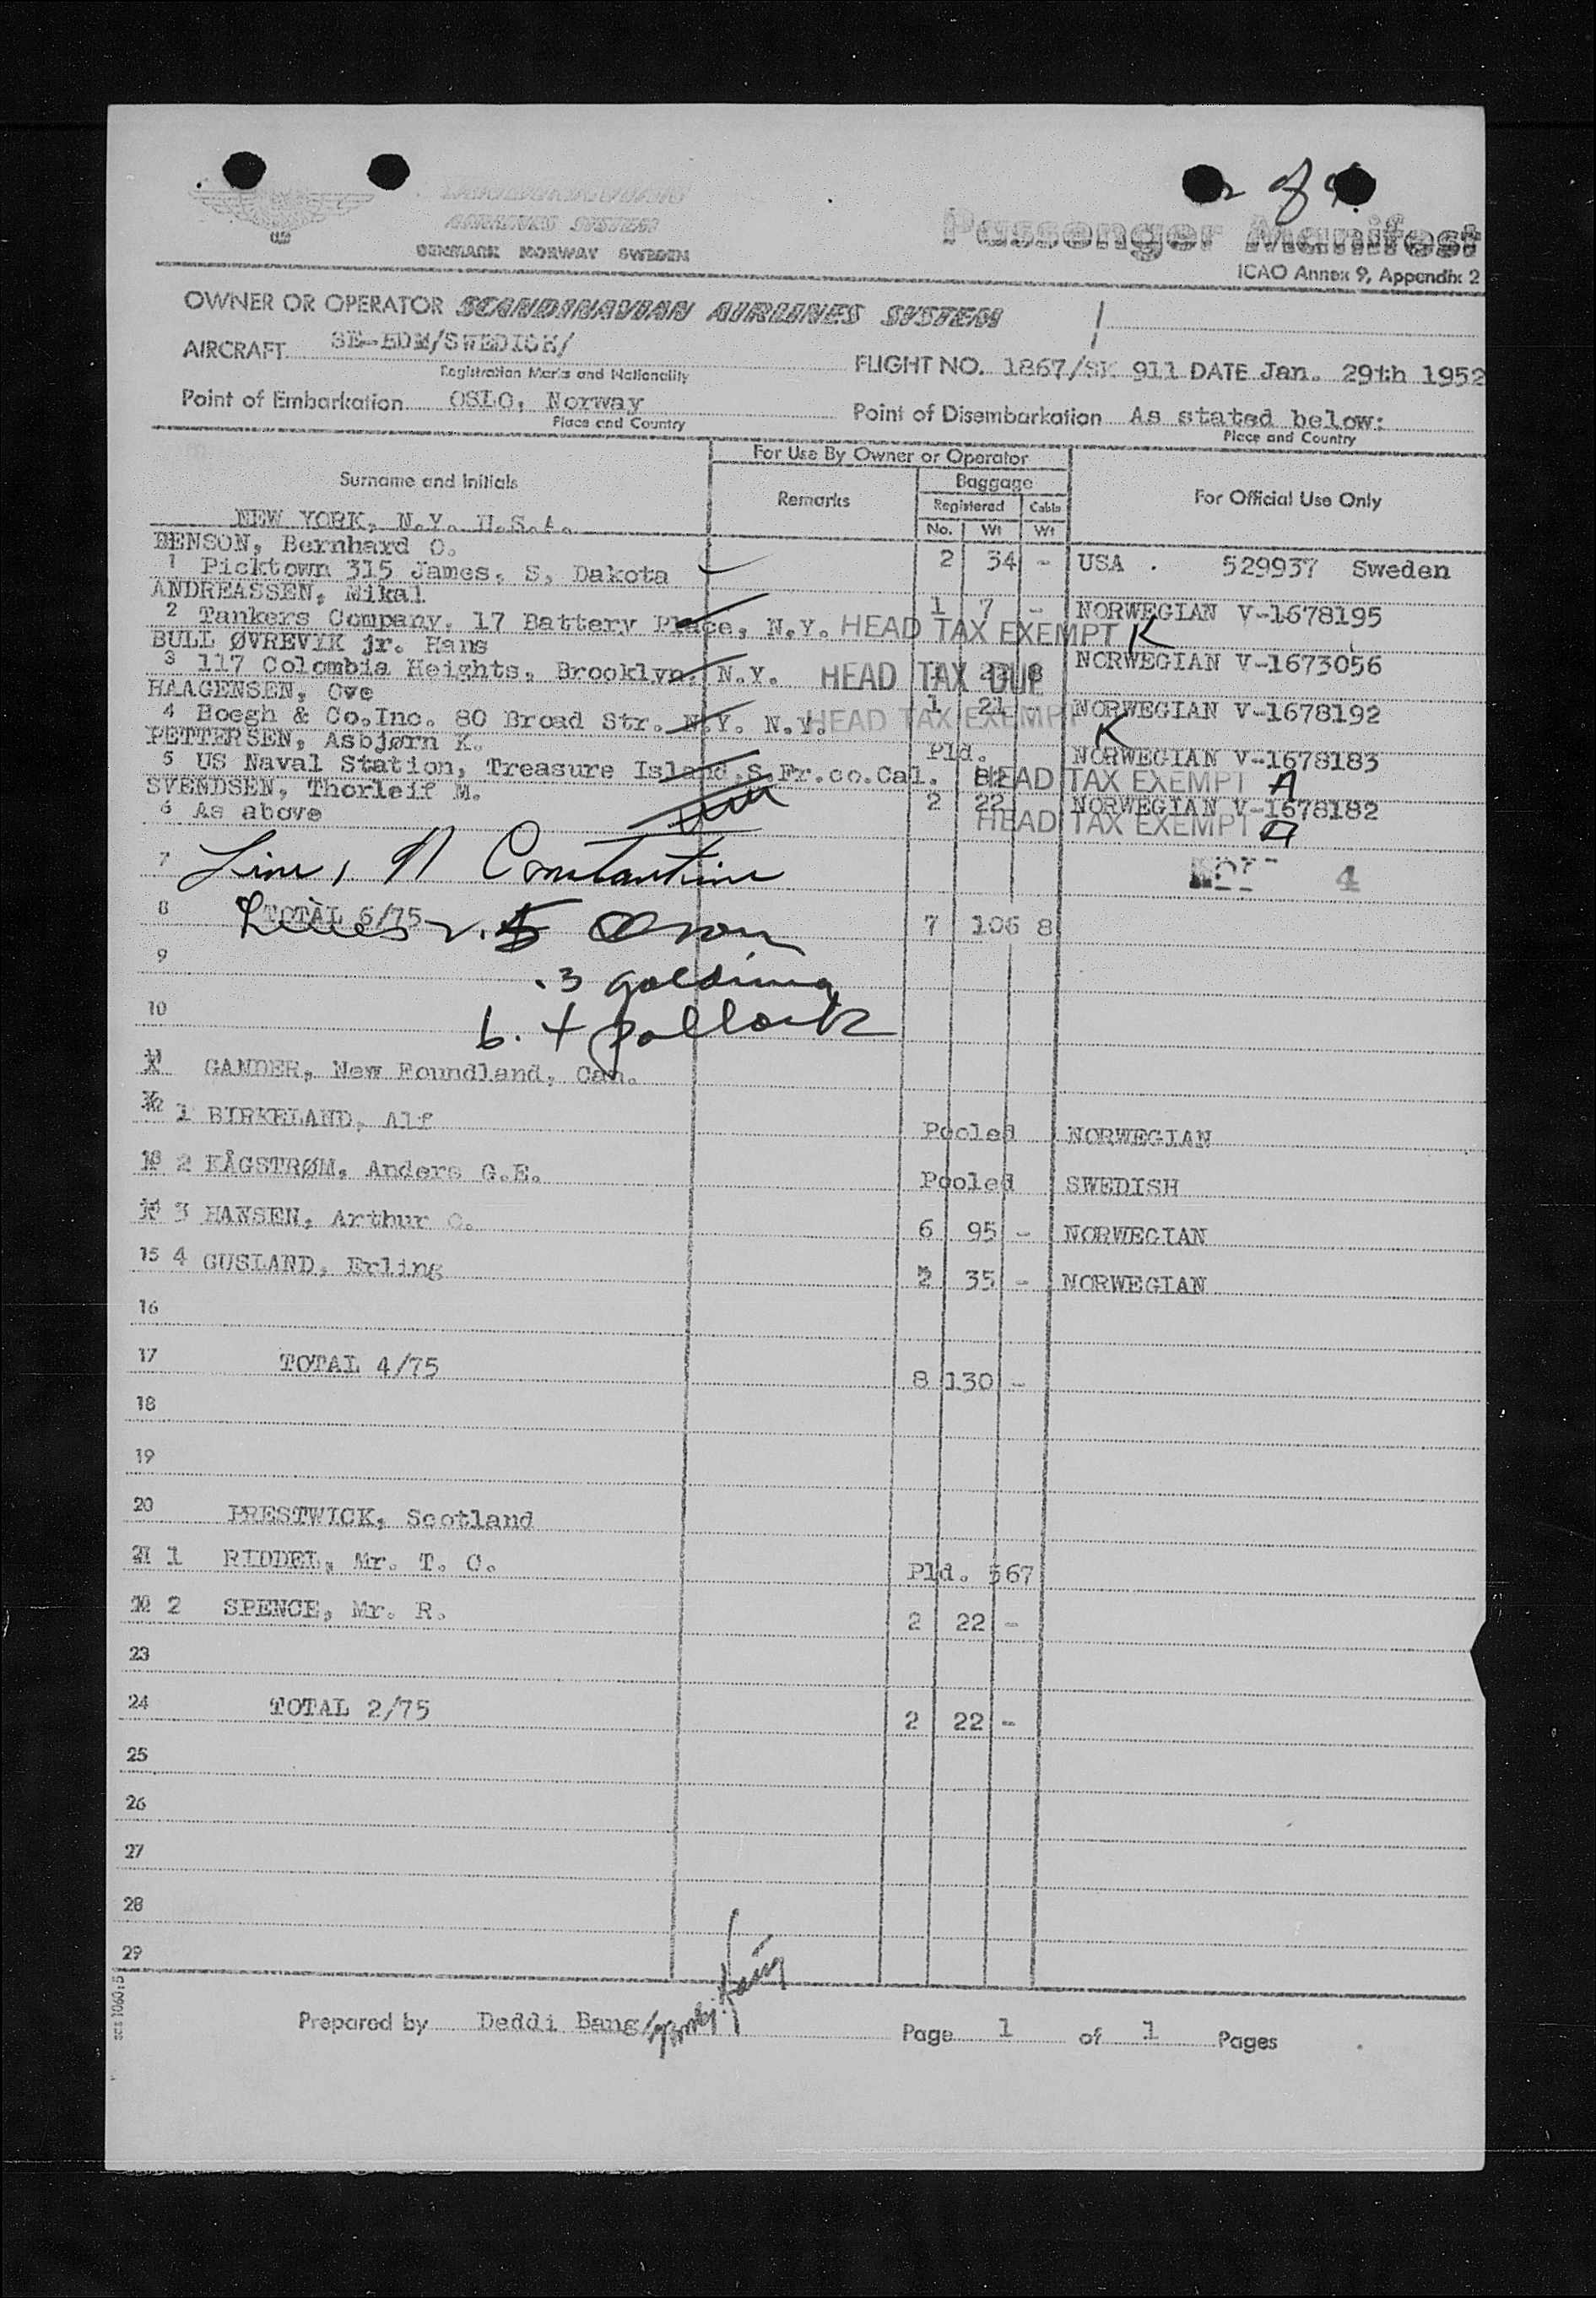 2 of
SCANDINAVIAN
AIRLINES SYSTEM
DENMARK NORWAY SWEDEN
Passenger Manifest
ICAO Annex 9, Appendix 2
OWNER OR OPERATOR SCANDINAVIAN AIRLINES SYSTEM
AIRCRAFT SE-BDM/SWEDISH/
Registration Marks and Nationality
FLIGHT NO. 1867/SK 911 DATE Jan. 29th 1952
Point of Embarkation OSLO, Norway
Place and Country
Point of Disembarkation As stated below:
Place and Country
For Use By Owner or Operator
Surname and Initials Remarks Baggage For Official Use Only
Registered Cabin
No. Wt Wt
NEW YORK, N.Y. U.S.A.
BENSON, Bernhard O.
1 Picktown 315 James, S, Dakota 2 34 - USA . 529937 Sweden
ANDREASSEN, Mikal
2 Tankers Company, 17 Battery Place, N.Y. HEAD TAX EXEMPT K 1 7 - NORWEGIAN V-1678195
BULL ØVREVIK jr. Hans
3 117 Colombia Heights, Brooklyn, N.Y. HEAD TAX DUE 1 22 8 NORWEGIAN V-1673056
HAAGENSEN, Ove
4 Boegh & Co.Inc. 80 Broad Str. N.Y. N.Y. HEAD TAX EXEMPT K 1 21 NORWEGIAN V-1678192
PETTERSEN, Asbjørn K.
5 US Naval Station, Treasure Island, S.Fr.co.Cal. Pld. NORWEGIAN V-1678183
HEAD TAX EXEMPT A
SVENDSEN, Thorleif M.
6 As above 2 22 NORWEGIAN V-1678182
HEAD TAX EXEMPT A
7 Line, Constantine 4
8 TOTAL 6/75 7 106 8
Lines 5
9
3 Golding
10
6. 4 Pollock
11 GANDER, New Foundland, Can.
12 1 BIRKELAND, Alf Pooled NORWEGIAN
13 2 KÅGSTRØM, Anders G.E. Pooled SWEDISH
14 3 HANSEN, Arthur O. 6 95 - NORWEGIAN
15 4 GUSLAND, Erling 2 35 - NORWEGIAN
16
17 TOTAL 4/75 8 130 -
18
19
20 PRESTWICK, Scotland
21 1 RIDDEL, Mr. T. C. Pld. 567
22 2 SPENCE, Mr. R. 2 22 -
23
24 TOTAL 2/75 2 22 -
25
26
27
28
29
Prepared by Deddi Bang/ Page 1 of 1 Pages